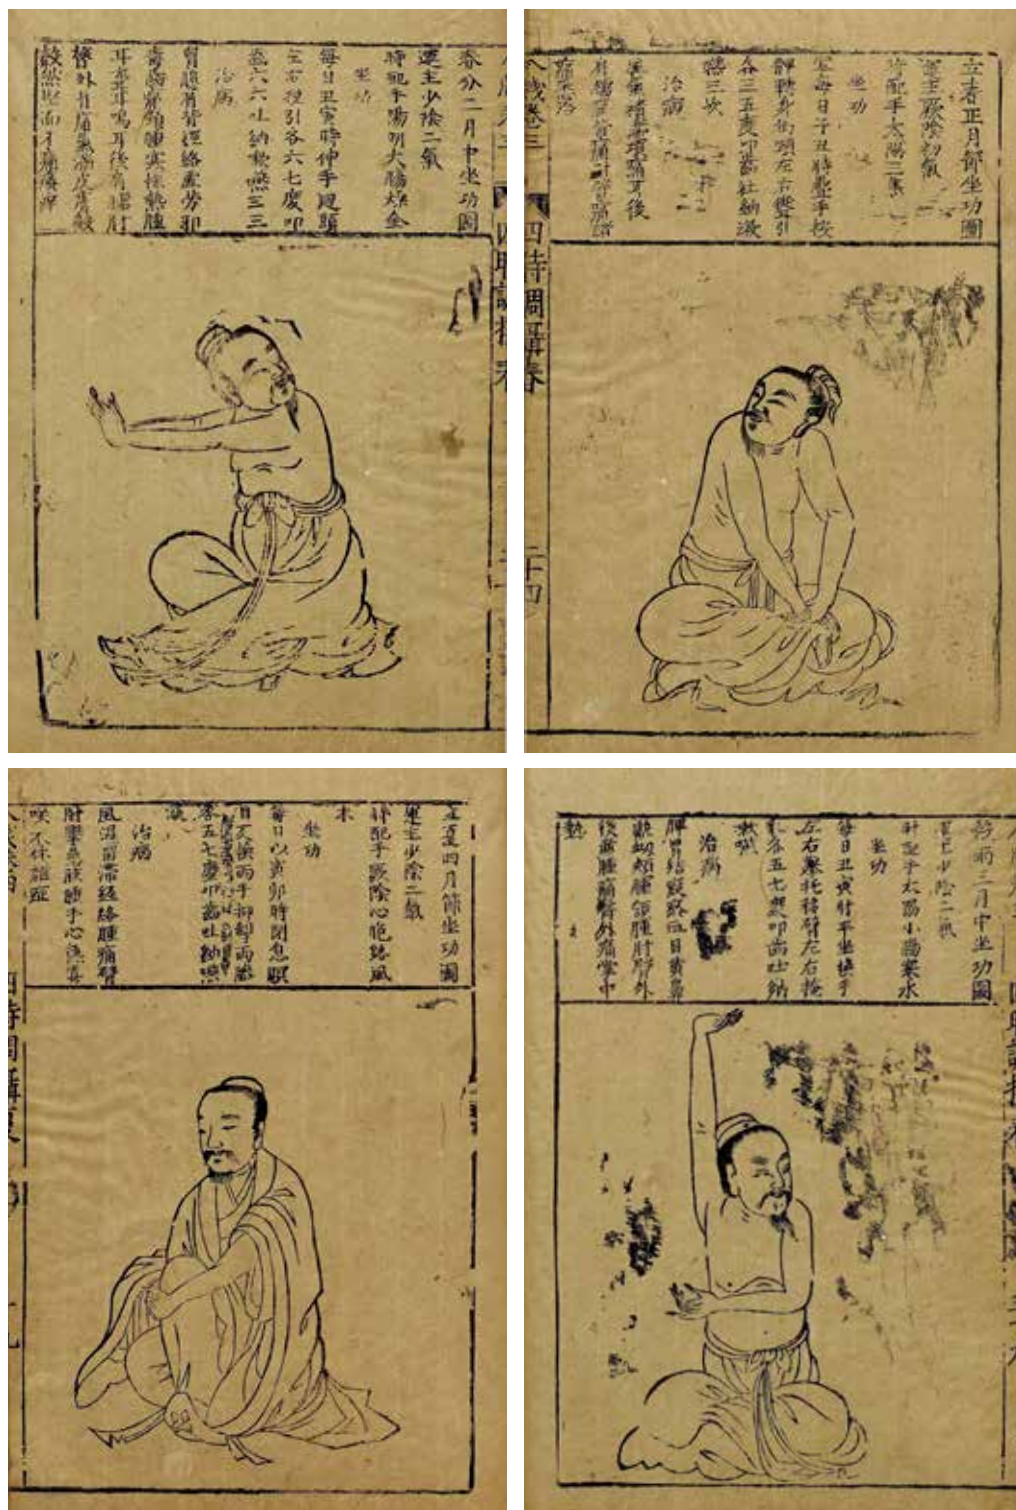 春分二月中坐功圖
運主少陰二氣
時配手陽明大腸燥金
坐功
每日丑寅時伸手廻頭
左右挽引各六七度叩
齒六六吐納嗽嚥三三
治病
胷臆肩背經絡虛勞邪
毒齒痛頸腫寒慄熱腫
耳聾耳鳴耳後肩臑肘
臂外背痛氣滿皮膚殼
殼然堅而不痛瘙痒
四時調攝春
立春正月節坐功圖
運主厥陰初氣
時配手太陽三焦
坐功
宜每日子丑時疊手按
髀轉身拗頸左右聳引
各三五度叩齒吐納漱
嚥三次
治病
風氣積滯頂痛耳後
肩臑痛背痛肘臂痛諸
痛悉治
八牋卷三
四時調攝春
二十四
立夏四月節坐功圖
運主少陰二氣
時配手厥陰心胞絡風
木
坐功
每日以寅卯時閉息瞑
目反換兩手抑掣兩膝
各五七度叩齒吐納嚥
液
治病
風濕留滯經絡腫痛臂
肘攣急腋腫手心熱喜
笑不休雜症
四時調攝
穀雨三月中坐功圖
運主少陰二氣
時配手太陽小腸寒水
坐功
每日丑寅時平坐換手
左右舉托移臂左右掩
乳各五七度叩齒吐納
嗽嚥
治病
脾胃結瘕瘀血目黃鼻
鼽衂頰腫頷腫肘臂外
後廉腫痛臂外痛掌中
熱